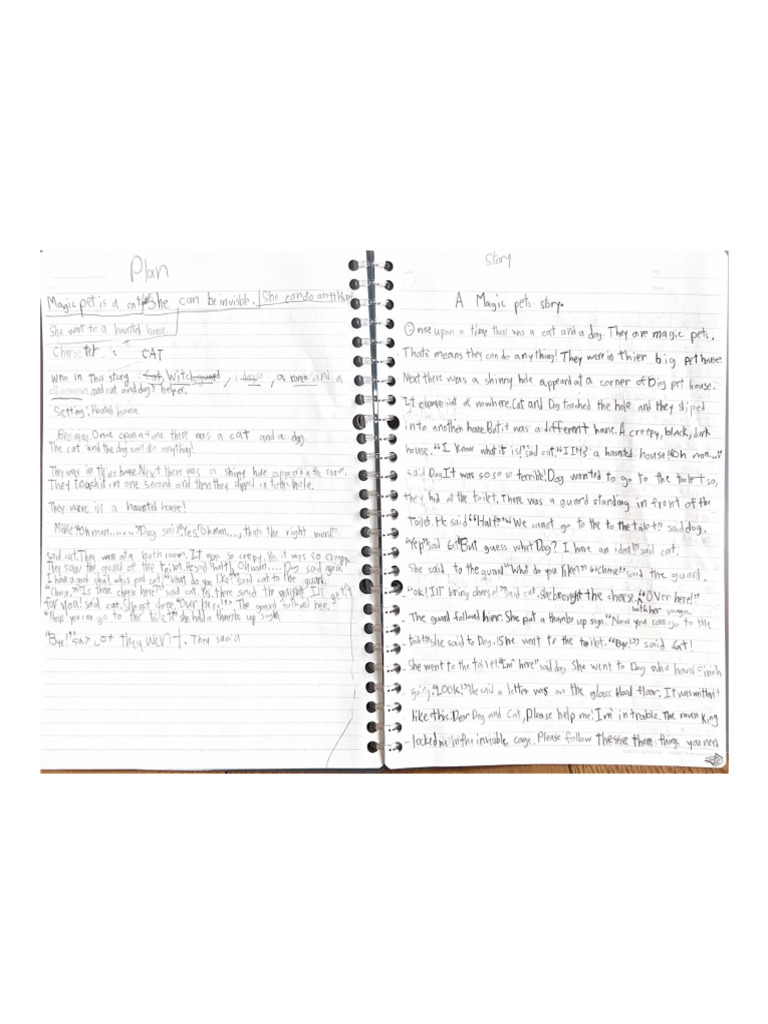 Plan
Magic pet is a cat. She can be invisible. She can do anything
She went to a haunted house.
Character : CAT
Who in this story : Cat, Witch guard, dog, a and a
and cat and dogs helper.
Setting : Haunted house
Begining. Once upon a time there was a cat and a dog.
The cat and the dog can do anything!
They were in house. Next there was a shiny hole appeard in the room.
They touch it in one second and then they sliped in to the hole.
They were in a haunted house!
Middle "Oh man........." Dog said. "Yes, Oh man..., thats the right word"
said cat. They went at a bath room. It was so crepy. Yes it was so creppy.
They saw the guard of the toilet. He said "Oh man.... Dog said again
I have a said cat! "What do you like?" said cat to the guard.
"Cheese." "Is there cheese here?" said cat. Yes, there said the guard. I'll get it
for you! said cat. She got cheese. "Over here!" The guard followed her.
"Now you can go to the toilet" she hold a thumbs up sign
"Bye!" say cat they went. They saw a
Story
A Magic pets story.
Once upon a time there was a cat and a dog. They are magic pets.
That's means they can do anything! They were in thier big pet house
Next there was a shinny hole appeard at a corner of Dog pet house.
It out of nowhere. Cat and Dog torched the hole and they sliped
into another house. But it was a different house. A creepy, black, dark
house. "I know what it is!" said cat. "It's a haunted house! Oh man..."
said Dog. It was so so so terrible! Dog wanted to go to the toilet so,
they hid at the toilet. There was a guard standing in front of the
Toilet. He said "Halt" "We canot go to the to the toilet!" said dog.
"Yep" said "But guess what Dog? I have an idea!" said cat.
She said to the guard "What do you like?" "Cheese" said the guard.
"OK! I'll bring cheese!" said cat. she brought the cheese. "Over here!"
with her
The guard followed hier. She put a thumbs up sign. "Now you can go to the
toilet" she said to Dog. She went to the toilet. "Bye!" said Cat!
She went to the toilet "I'm here" said dog. She went to Dog who
going. "LOOK!" She said a letter was on the glass blood floor. It was
like this. Dear Dog and Cat, Please help me! I'm in trouble. The King
locked me in the invisible cage. Please follow Thesse three things you need